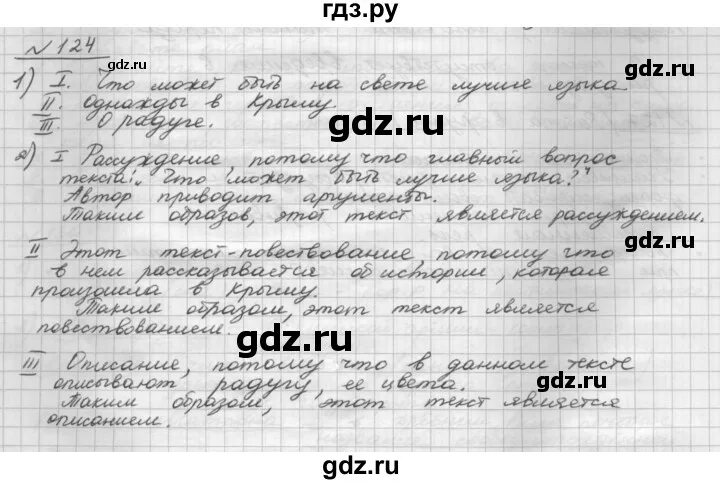 гдз.ру
№ 124
gdz.ru
gdz.ru
1) I. Что может быть на свете лучше языка.
II. Однажды в Крыму.
III. О радуге.
gdz.ru
2) I Рассуждение, потому что главный вопрос
текста: "Что может быть лучше языка?"
Автор приводит аргументы.
Таким образов, этот текст является рассуждением.
gdz.ru
II Этот текст-повествование, потому что
в нем рассказывается об истории, которая
произошла в Крыму.
Таким образом, этот текст является
повествованием.
gdz.ru
III Описание, потому что в данном тексте
описывают радугу, ее цвета.
Таким образом, этот текст является
описанием.
gdz.ru
gdz.ru
gdz.ru